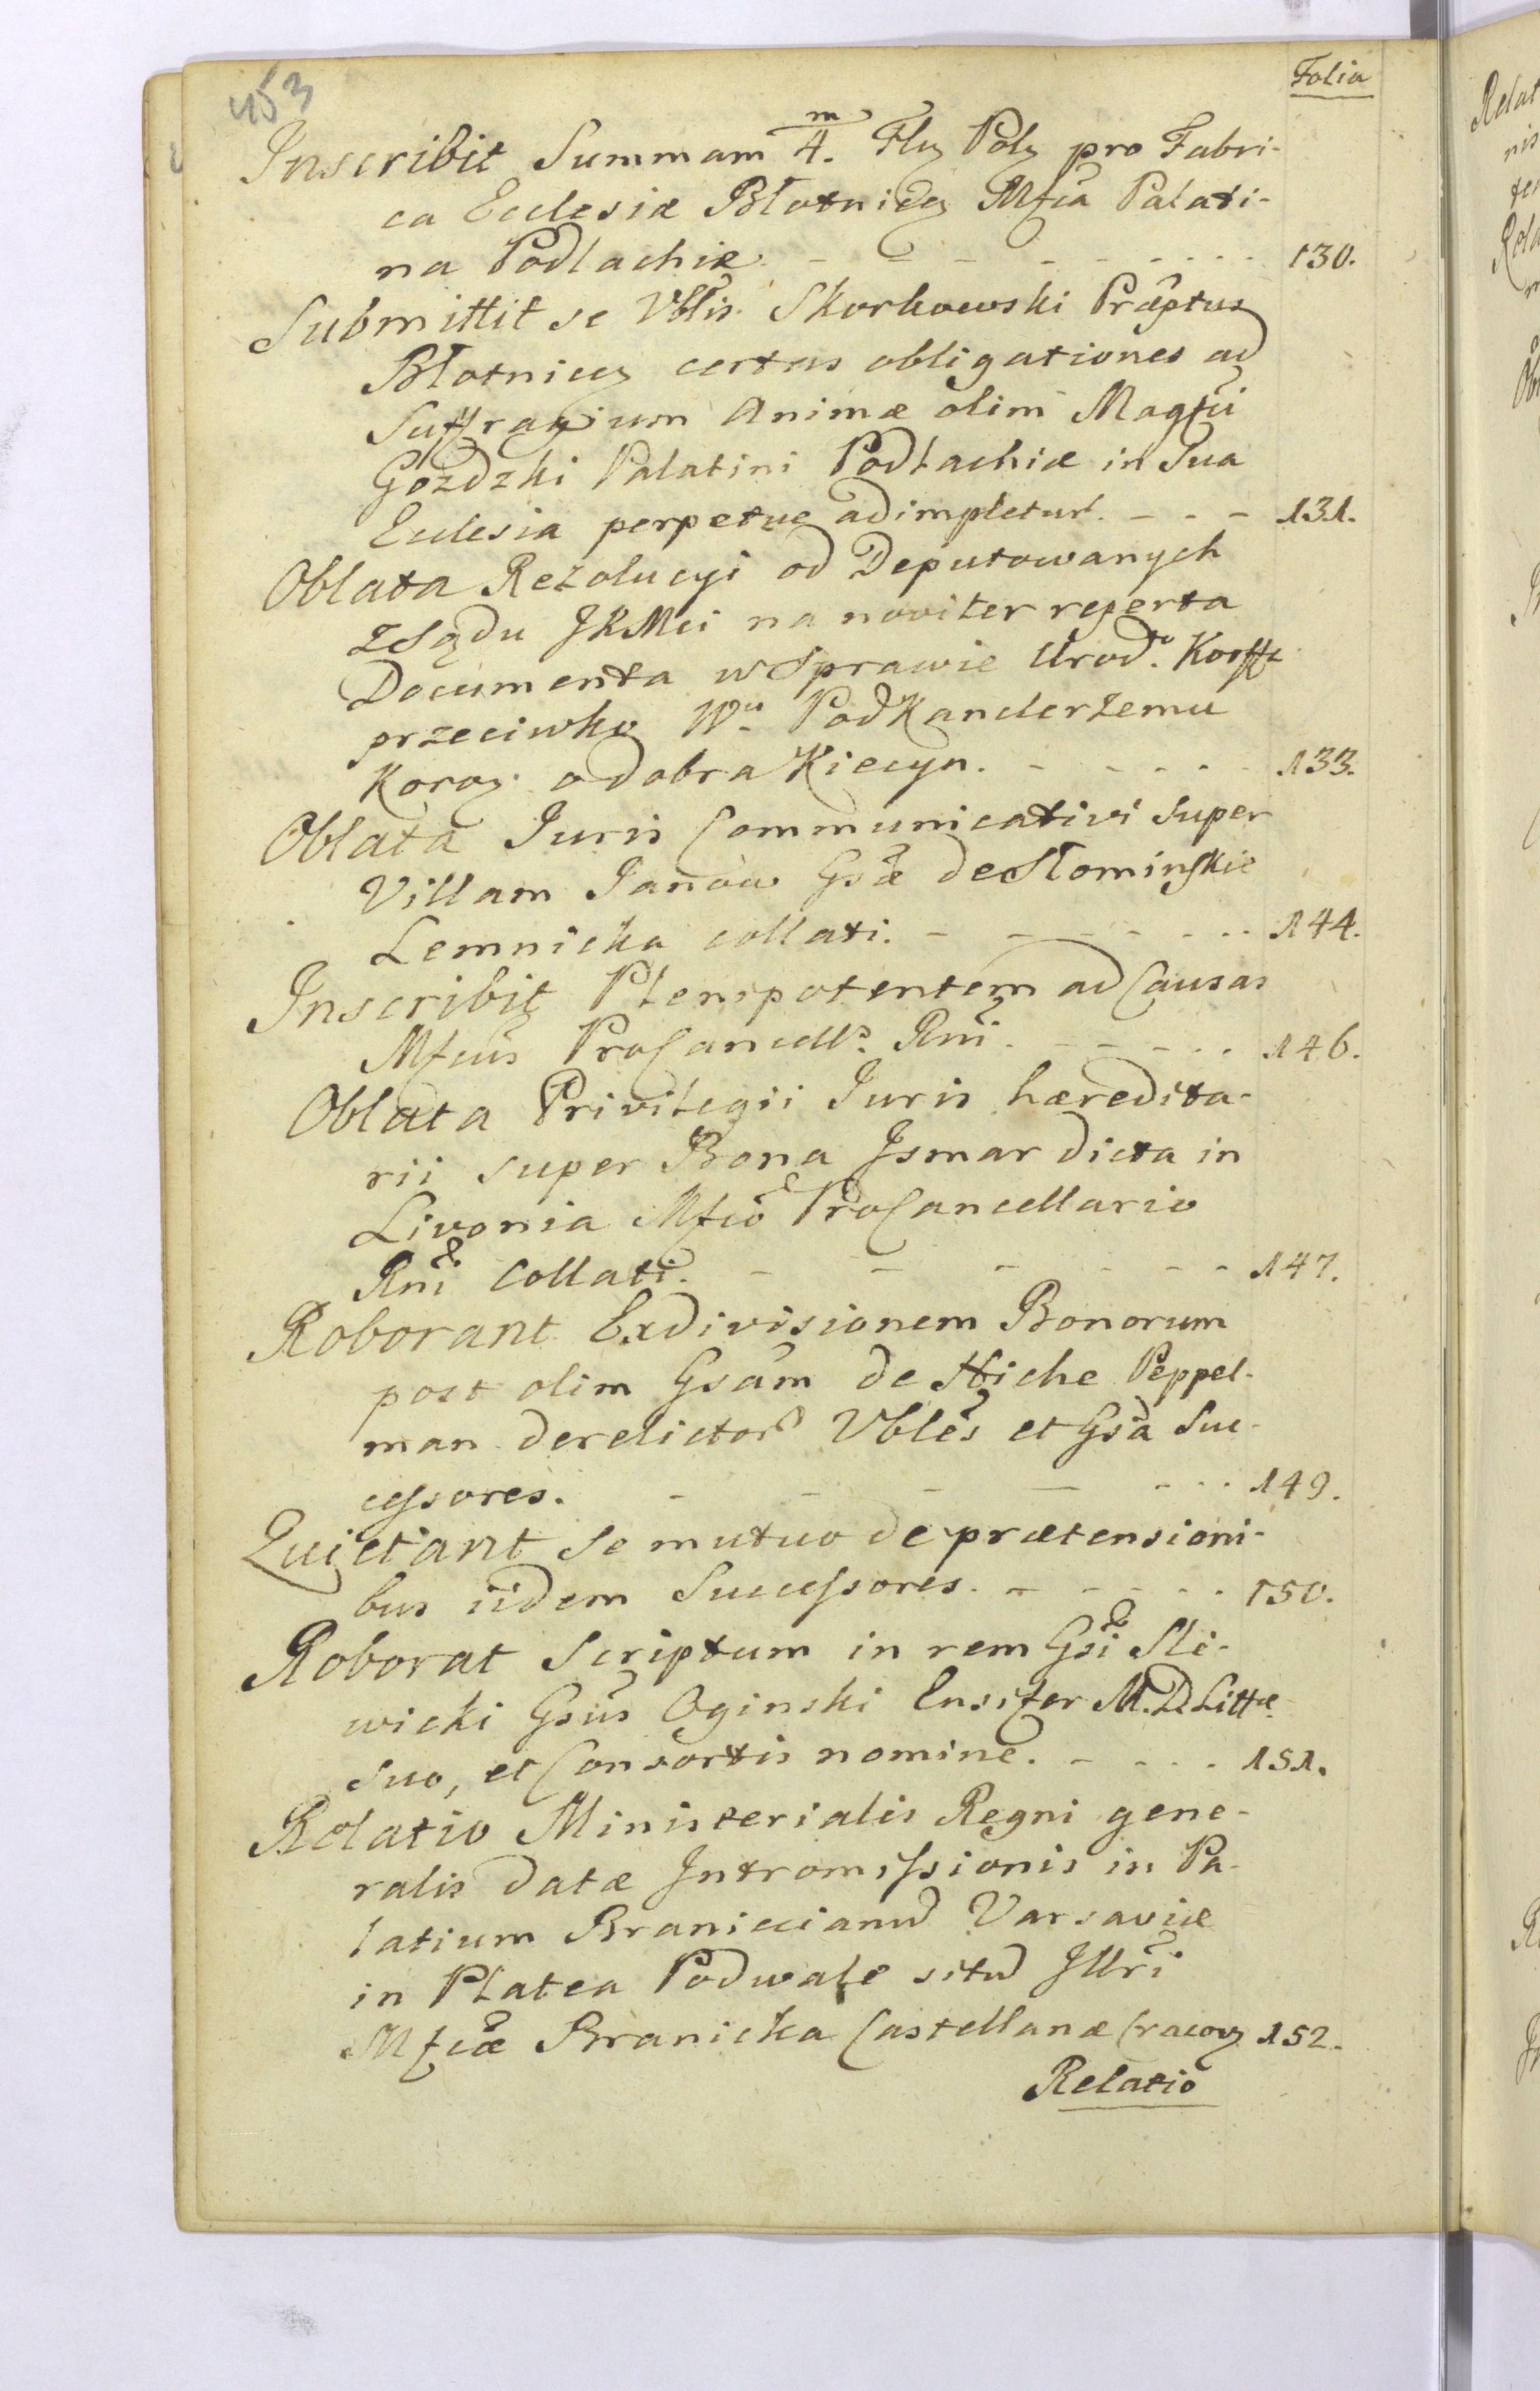 453
Folia
Inscribit Summam m/4. Flz Polz pro Fabri-
ca Ecclesiæ Błotnicz Mfca Palati-
na Podlachiæ. - - - - - - - - 130.
Submittit se Vblis. Skorkowski Præptus
Błotnicz certas obligationes ad
Suffragium Animæ olim Magfci
Gozdzki Palatini Podlachiæ in Sua
Ecclesia perpetue adimpletur. - - - 131.
Oblata Rezolucyi od Deputowanych
z Sądu JKMci na noviter reperta
Documenta w Sprawie Urod. Korffa
przeciwko Wu. PodKanclerzemu
Koroz. o dobra Kiecyn. - - - - - 133.
Oblata Juris Communicativi super
Villam Janow Gsæ de Słominskie
Lemnicka collati. - - - - - - 144.
Inscribit Plenipotentem ad Causas
Mfcus ProCancells. Rni. - - - - - 146.
Oblata Privilegii Juris hæredita-
rii super Bona Ismar dicta in
Livonia Mfco ProCancellario
Rni Collati. - - - - - - 147.
Roborant Exdivisionem Bonorum
post olim Gsam de Hiche Peppel-
man derelictor Vbles et Gsa Suc-
cessores. - - - - - - - 149.
Quietant se mutuo de prætensioni-
bus iidem Successores. - - - - - 150.
Roborat Scriptum in rem Gsi Sle-
wicki Gsus Oginski Ensifer M.D.Littæ
suo, et Consortis nomine. - - - - 151.
Relatio Ministerialis Regni gene-
ralis datæ Intromissionis in Pa-
latium Branicianu Varsaviæ
in Platea Podwale situ Illri
Mfcæ Branicka Castellanæ Cracov 152.
Relatio